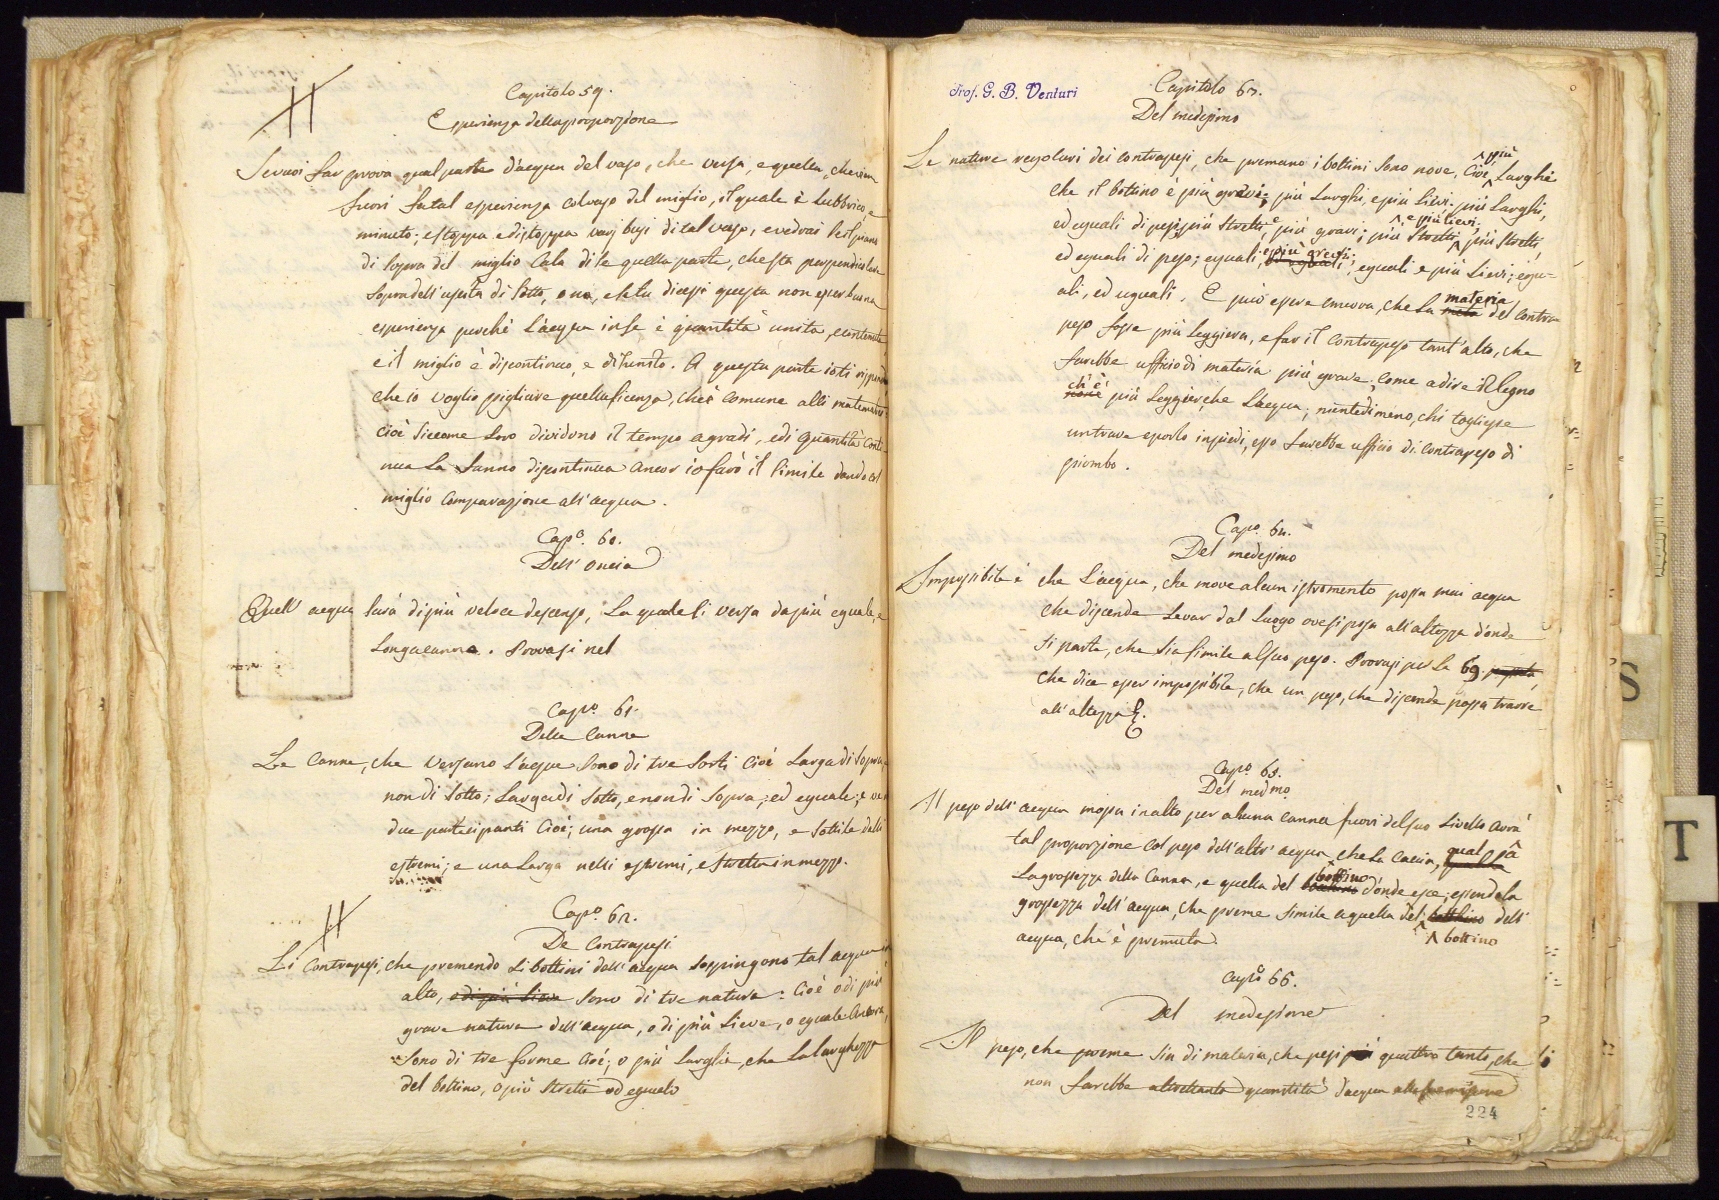 Capitolo 59.
Esperienza della proporzione
Se vuoi far prova qual parte d'acqua del vaso, che versa, e quella, che
fuori fa tal esperienza col vaso del miglio, il quale è lubbrico, e
minuto; e stoppa e distoppa varj busi di tal vaso, e vedrai se il piano
di sopra del miglio cala di se quella parte, che sta perpendiculare
sopra dell'uscita di sotto, o no, e se tu dicessi questa non esser buona
esperienza perché l'acqua in se è quantità unita, e continuata
e il miglio è discontinuo, e disunito. A questa parte io ti rispondo
che io voglio pigliare quella licenza, ch'è comune alli matematici
cioè siccome loro dividono il tempo a gradi, e di quantità conti-
nua la fanno discontinua ancor io farò il simile dando col
miglio comparazione all'acqua.
Capo. 60.
Dell'oncia
Quell' acqua sarà di più veloce descenso, la quale si versa da più eguale, e
longa canna. Provasi nel
Capo. 61.
Delle Canne
Le canne, che versano l'acqua sono di tre sorti cioè larga di sopra, e
non di sotto; larga di sotto, e non di sopra; ed eguale; e
due participanti cioè; una grossa in mezzo, e sottile dalli
estremi; e una larga nelli estremi, e stretta in mezzo.
Capo. 62.
De Contrapesi
Li contrapesi, che premendo li bottini dall'acqua sospingono tal acqua in
alto, o di più lieve sono di tre natura: cioè o di più
grave natura dell'acqua, o di più lieve, o eguale ancora,
sono di tre forme cioè; o più larghe, che la larghezza
del bottino, o più strette od eguale
Prof. G. B. Venturi
Capitolo 63.
Del medesimo
Le nature regolari dei contrapesi, che premano i bottini sono nove, cioè, più larghi
che il bottino è più gravi; più larghi, e più lievi. più larghi,
ed eguali di peso; più stretti, e più gravi; più stretti, e più lievi; più stretti,
ed eguali di peso; eguali, ed eguali; e più gravi; eguali e più lievi; egu-
ali, ed uguali. E può essere ancora, che la meta materia del contra
peso fosse più leggiera, e far il contrapeso tant'alto, che
farebbe ufficio di materia più grave, come a dire il legno
non è ch'è più leggier, che l'acqua, nientedimeno, chi togliesse
un trave e porlo in piedi, esso farebbe ufficio di contrapeso di
piombo.
Capo. 64.
Del medesimo
Impossibile è che l'acqua, che move alcun istromento possa mai acqua
che discende levar dal luogo ove si posa all'altezza d'onde
si parte, che sia simile al suo peso. Provasi per la 69.
che dice esser impossibile, che un peso, che discende possa trarre
all'altezza
Capo. 65.
Del medmo
Il peso dell'acqua mossa in alto per alcuna canna fuori del suo livello avrà
tal proporzione col peso dell'altr'acqua, che la caccia, qual
la grossezza della canna, e quella del bottino d'onde esce, essendo la
grossezza dell'acqua, che preme simile a quella del bottino dell'
acqua, che è premuta. bottino
Capo 66.
Del medesimo
Il peso, che preme sia di materia, che pesi più quattro tanto, che
non sarebbe altrettanta quantità d'acqua
224
S
T